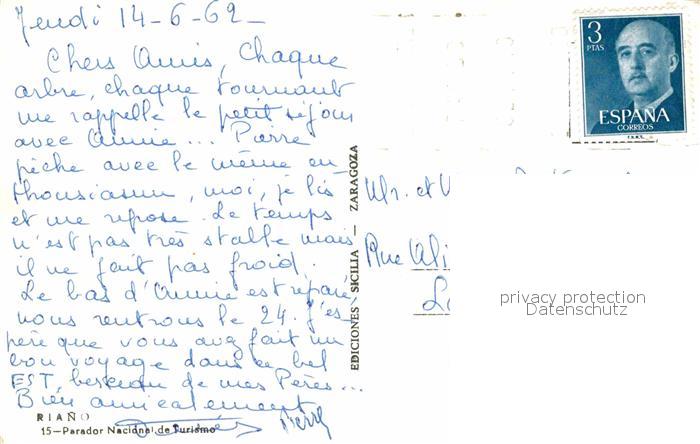 Jeudi 14-6-62-
Chers Amis, Chaque
arbre, chaque tournant
me rappelle le petit séjour
avec Annie... Pierre
pêche avec le même en
thousiasm, moi, je lis
et me repose. Le temps
n'est pas très stable mais
il ne fait pas froid.
Le bas d'Annie est réparé,
nous rentrons le 24. J'es-
père que vous avez fait un
bon voyage dans ce bel
EST, berceau de mes Pères...
Bien amicalement
Pierre
RIAÑO
15—Parador Nacional de Turismo
EDICIONES SICILIA — ZARAGOZA
3
PTAS
ESPAÑA
CORREOS
F.N.M.T.
Mr. et
Rue
privacy protection
Datenschutz